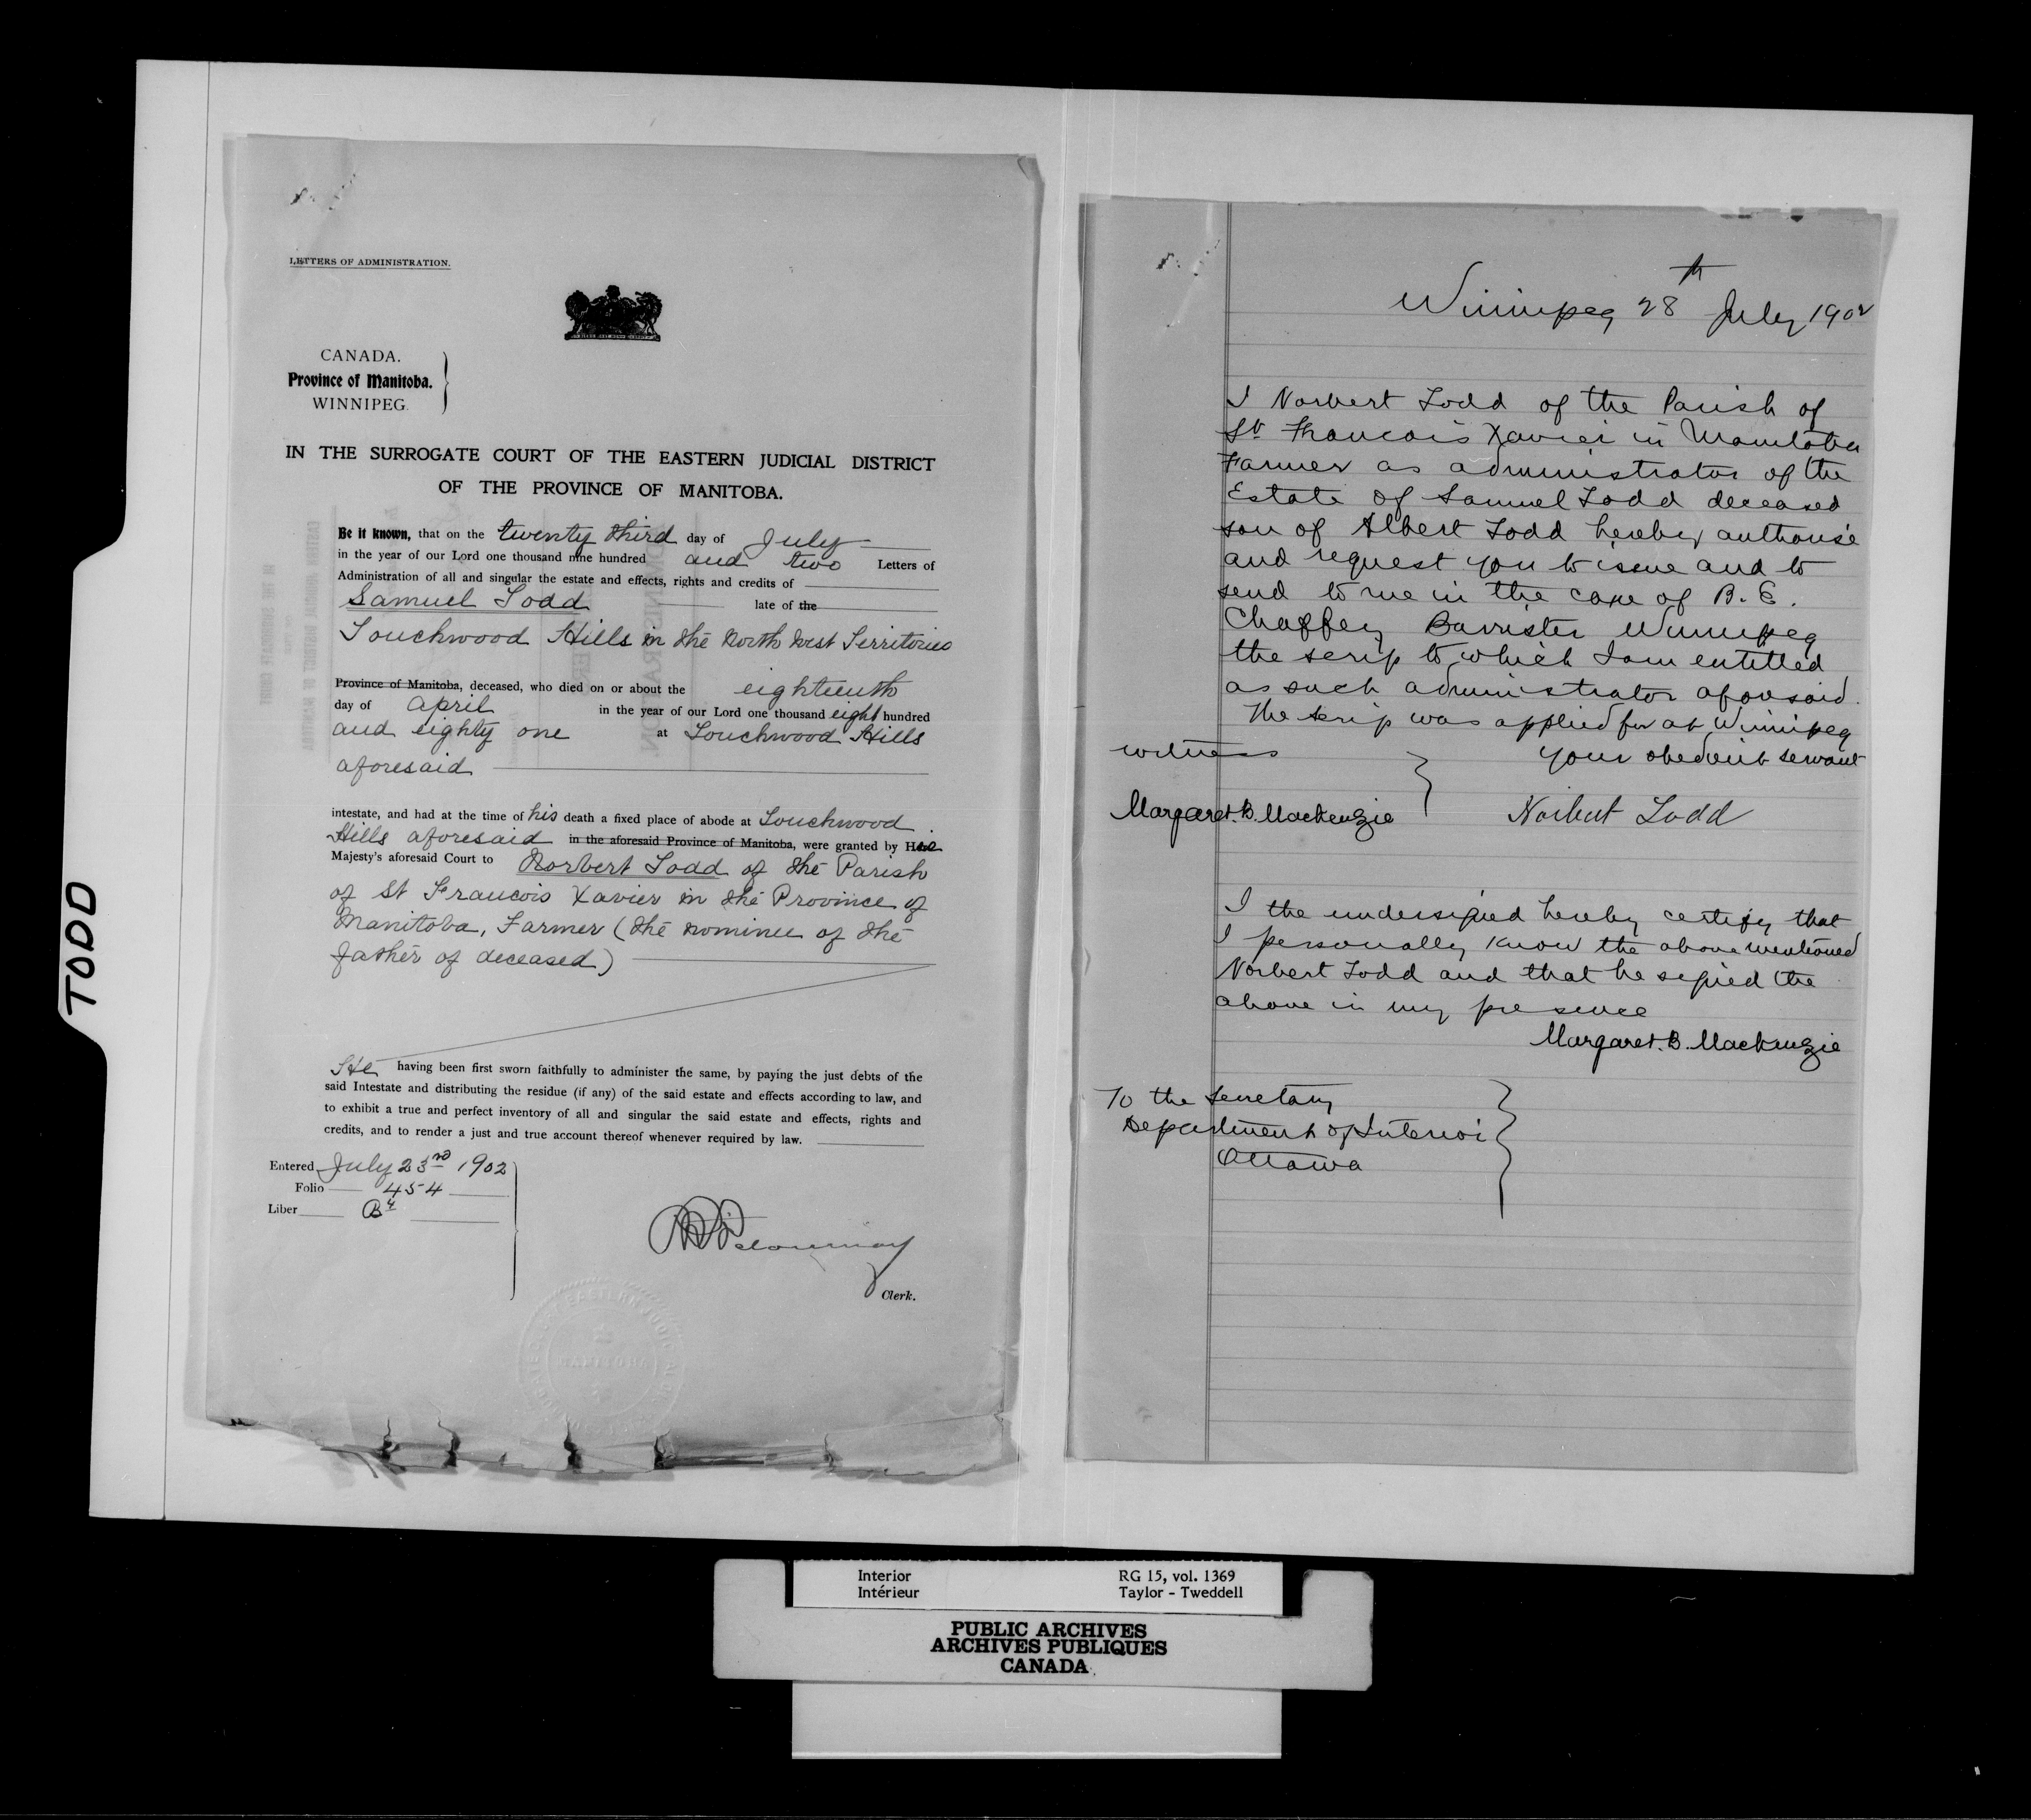 TODD
LETTERS OF ADMINISTRATION.
CANADA.
Province of Manitoba.
WINNIPEG.
IN THE SURROGATE COURT OF THE EASTERN JUDICIAL DISTRICT
OF THE PROVINCE OF MANITOBA.
Be it known, that on the twenty third day of July
in the year of our Lord one thousand nine hundred and two Letters of
Administration of all and singular the estate and effects, rights and credits of
Samuel Todd late of the
Touchwood Hills in the North West Territories
Province of Manitoba, deceased, who died on or about the eighteenth
day of April in the year of our Lord one thousand eight hundred
and eighty one at Touchwood Hills
aforesaid
intestate, and had at the time of his death a fixed place of abode at Touchwood
Hills aforesaid in the aforesaid Province of Manitoba, were granted by His
Majesty's aforesaid Court to Norbert Todd of the Parish
of St Francois Xavier in the Province of
Manitoba, Farmer (the nominee of the
father of deceased)
He having been first sworn faithfully to administer the same, by paying the just debts of the
said Intestate and distributing the residue (if any) of the said estate and effects according to law, and
to exhibit a true and perfect inventory of all and singular the said estate and effects, rights and
credits, and to render a just and true account thereof whenever required by law.
Entered July 23rd 1902
Folio 454
Liber B4
Clerk.
MANITOBA
Winnipeg 28th July 1902
I Norbert Todd of the Parish of
St Francois Xavier in Manitoba
Farmer as administrator of the
Estate of Samuel Todd deceased
son of Albert Todd hereby authorise
and request you to issue and to
send to me in the care of B. E.
Chaffey Barrister Winnipeg
the scrip to which I am entitled
as such administrator aforesaid.
The scrip was applied for at Winnipeg
witness your obedient servant
Margaret. B. Mackenzie Norbert Todd
I the undersigned hereby certify that
I personally know the above mentioned
Norbert Todd and that he signed the
above in my presence
Margaret. B. Mackenzie
To the Secretary
Department of Interior
Ottawa
Interior RG 15, vol. 1369
Intérieur Taylor - Tweddell
PUBLIC ARCHIVES
ARCHIVES PUBLIQUES
CANADA